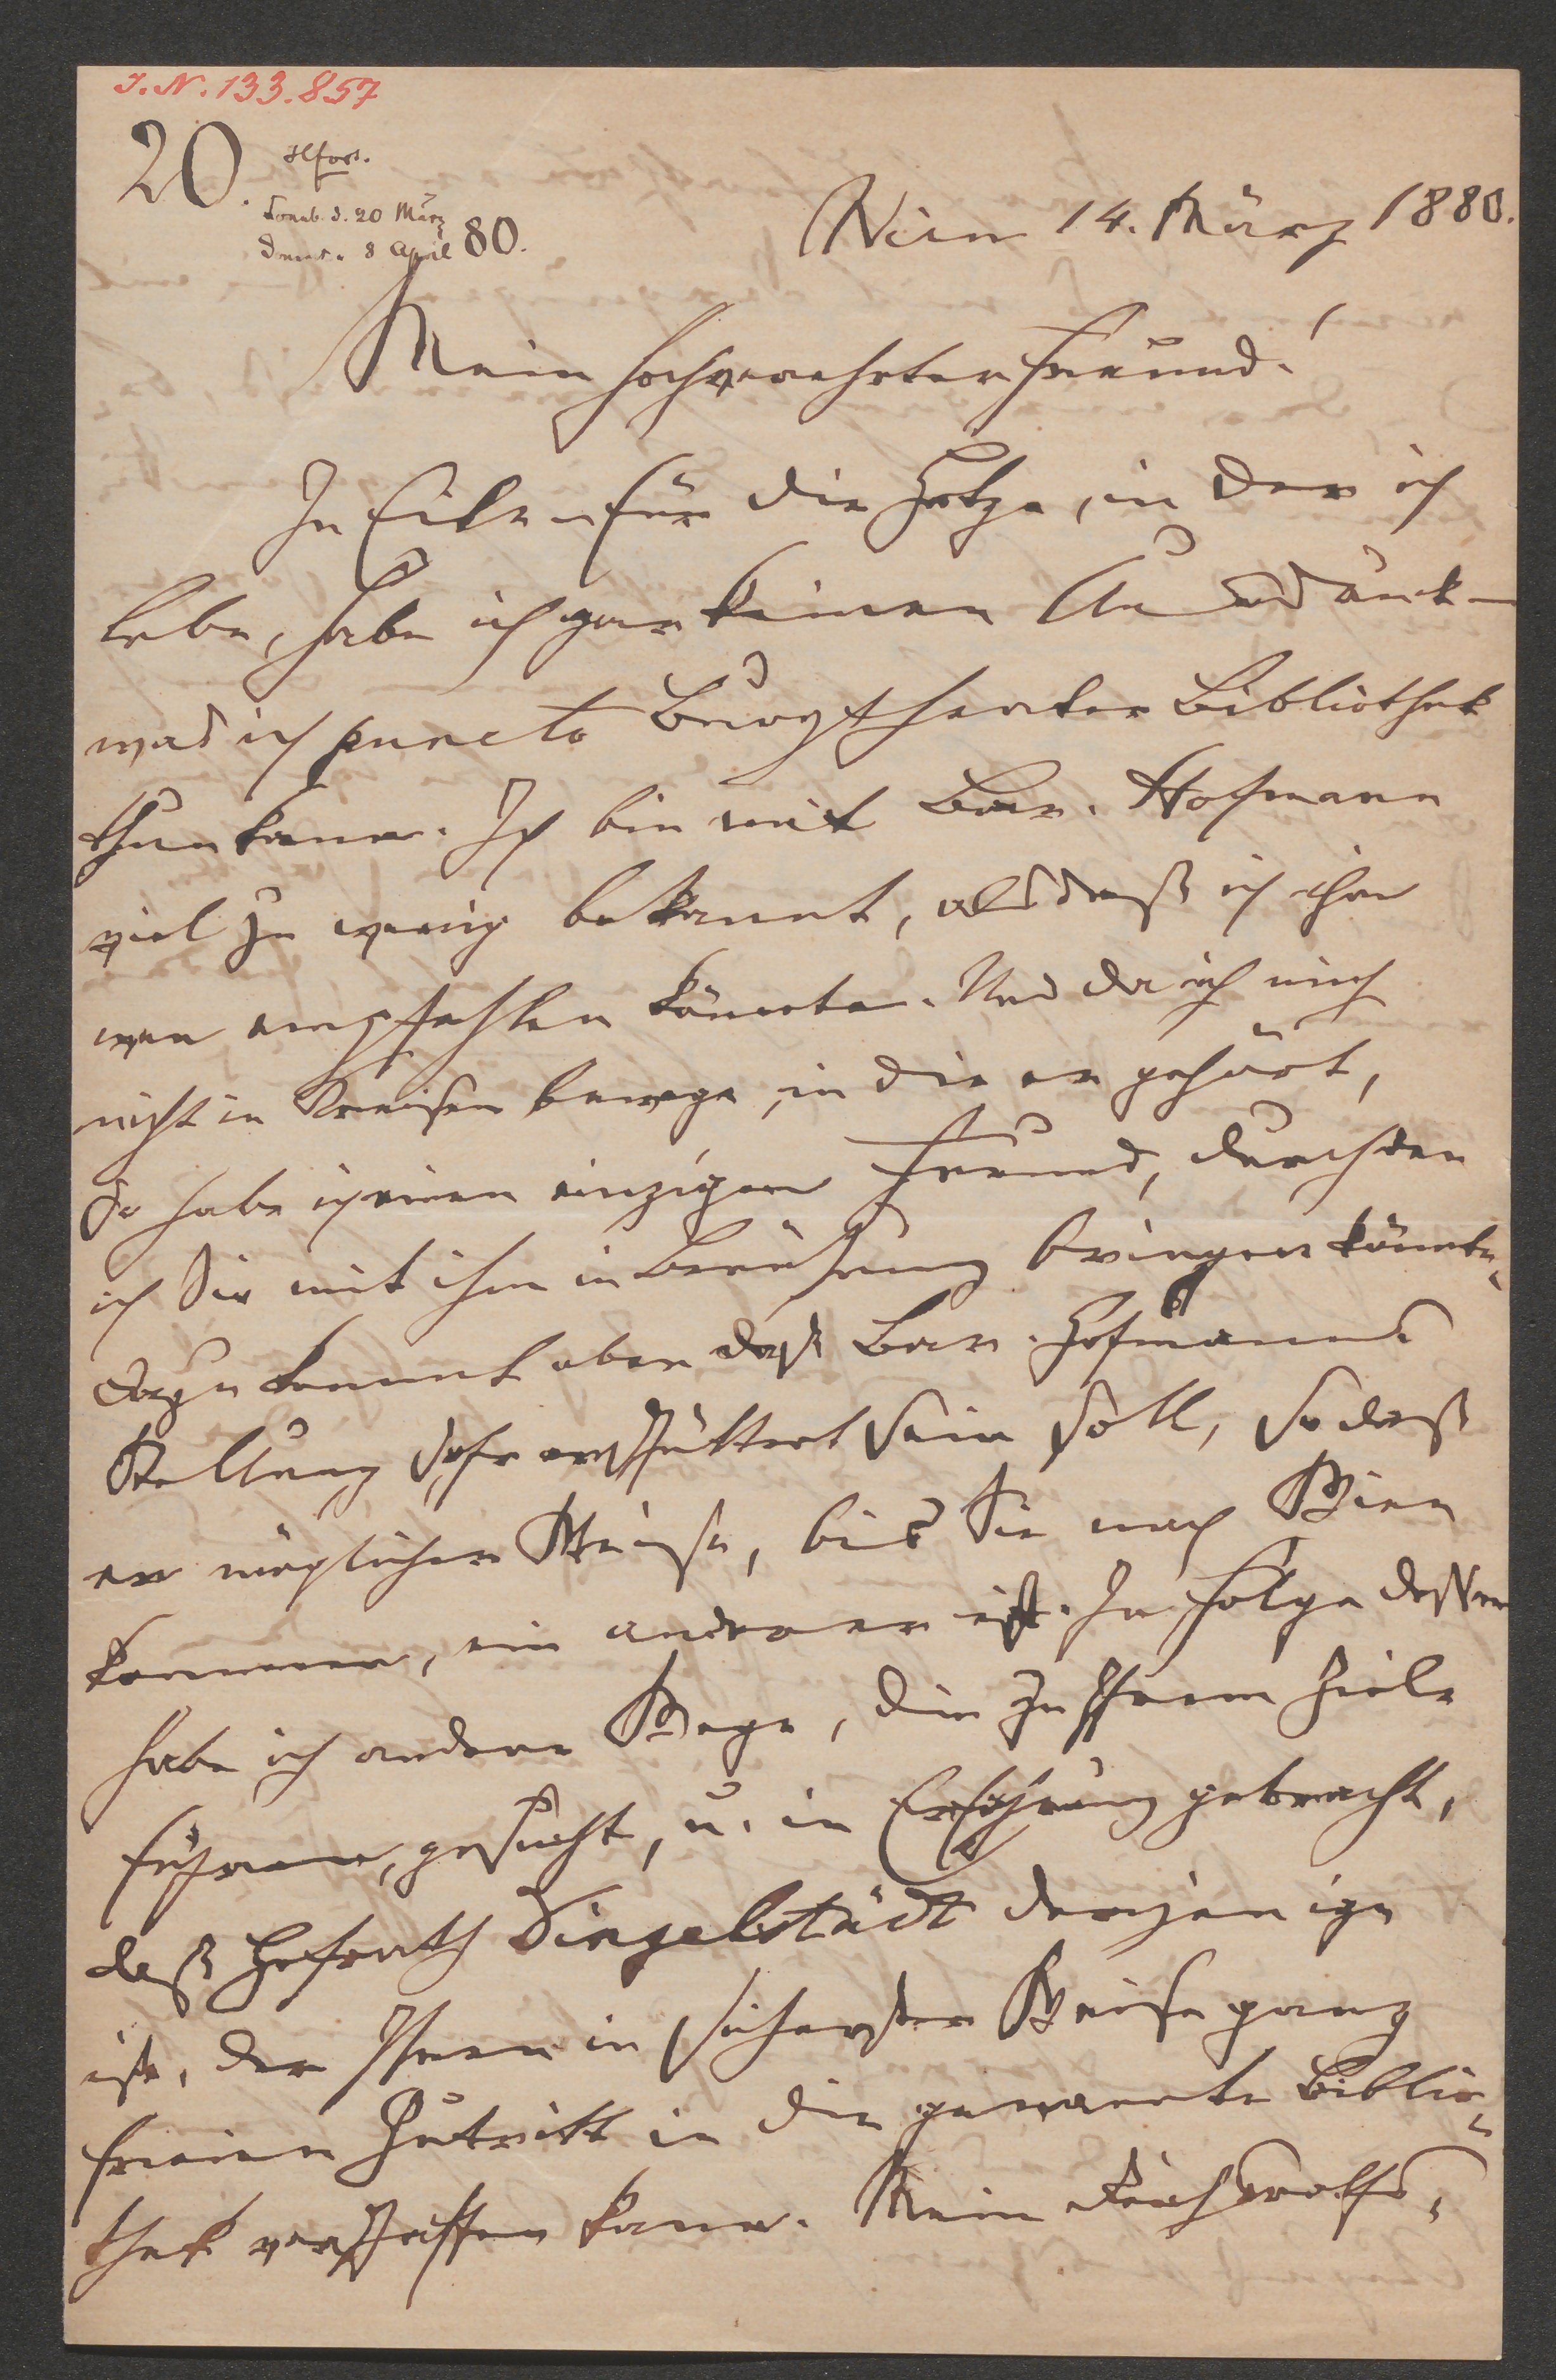 I. N. 133.857
20.
Sonab. d. 20 März
Donnerst. 8 April 80.
Wien 14. März 1880.
Mein hochverehrter Freund!
In Eile – für die Hetze, in der ich
lebe, habe ich gar keinen Ausdruck –
was ich puncto Burgtheater Bibliothek
thun kann. Ich bin mit Bar. Hofmann
viel zu wenig bekannt, als daß ich ihm
wen empfehlen könnte. Und da ich mich
nicht in Kreisen bewege, in die er gehört,
so habe ich einen einzigen Freund, durch den
ich Sie mit ihm in Berührung bringen könnte.
Dazu kommt aber daß Bar. Hofmanns
Stellung sehr erschüttert sein soll, so daß
er möglicher Weise, bis Sie nach Wien
kommen, ein anderer ist. In Folge dessen
habe ich andere Wege, die zu Ihrem Ziele
führen, gesucht, u. in Erfahrung gebracht,
daß Hofrath Dingelstädt derjenige
ist, der Ihnen in sicherster Weise ganz
freien Zutritt in die genannte Biblio-
thek verschaffen kann. Mein Reichsraths-